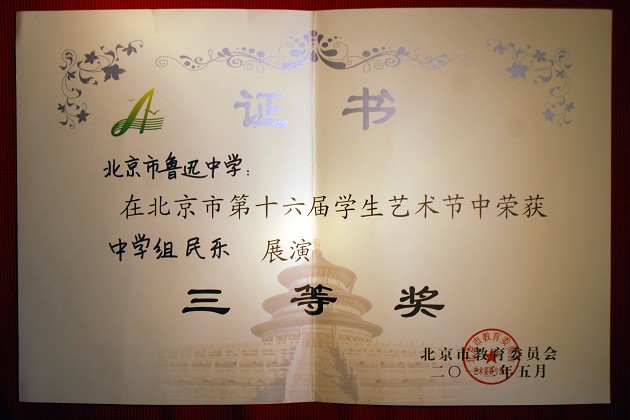 证书
北京市鲁迅中学:
在北京市第十六届学生艺术节中荣获
中学组民乐 展演
三等奖
北京市教育委员会
二〇一 年五月